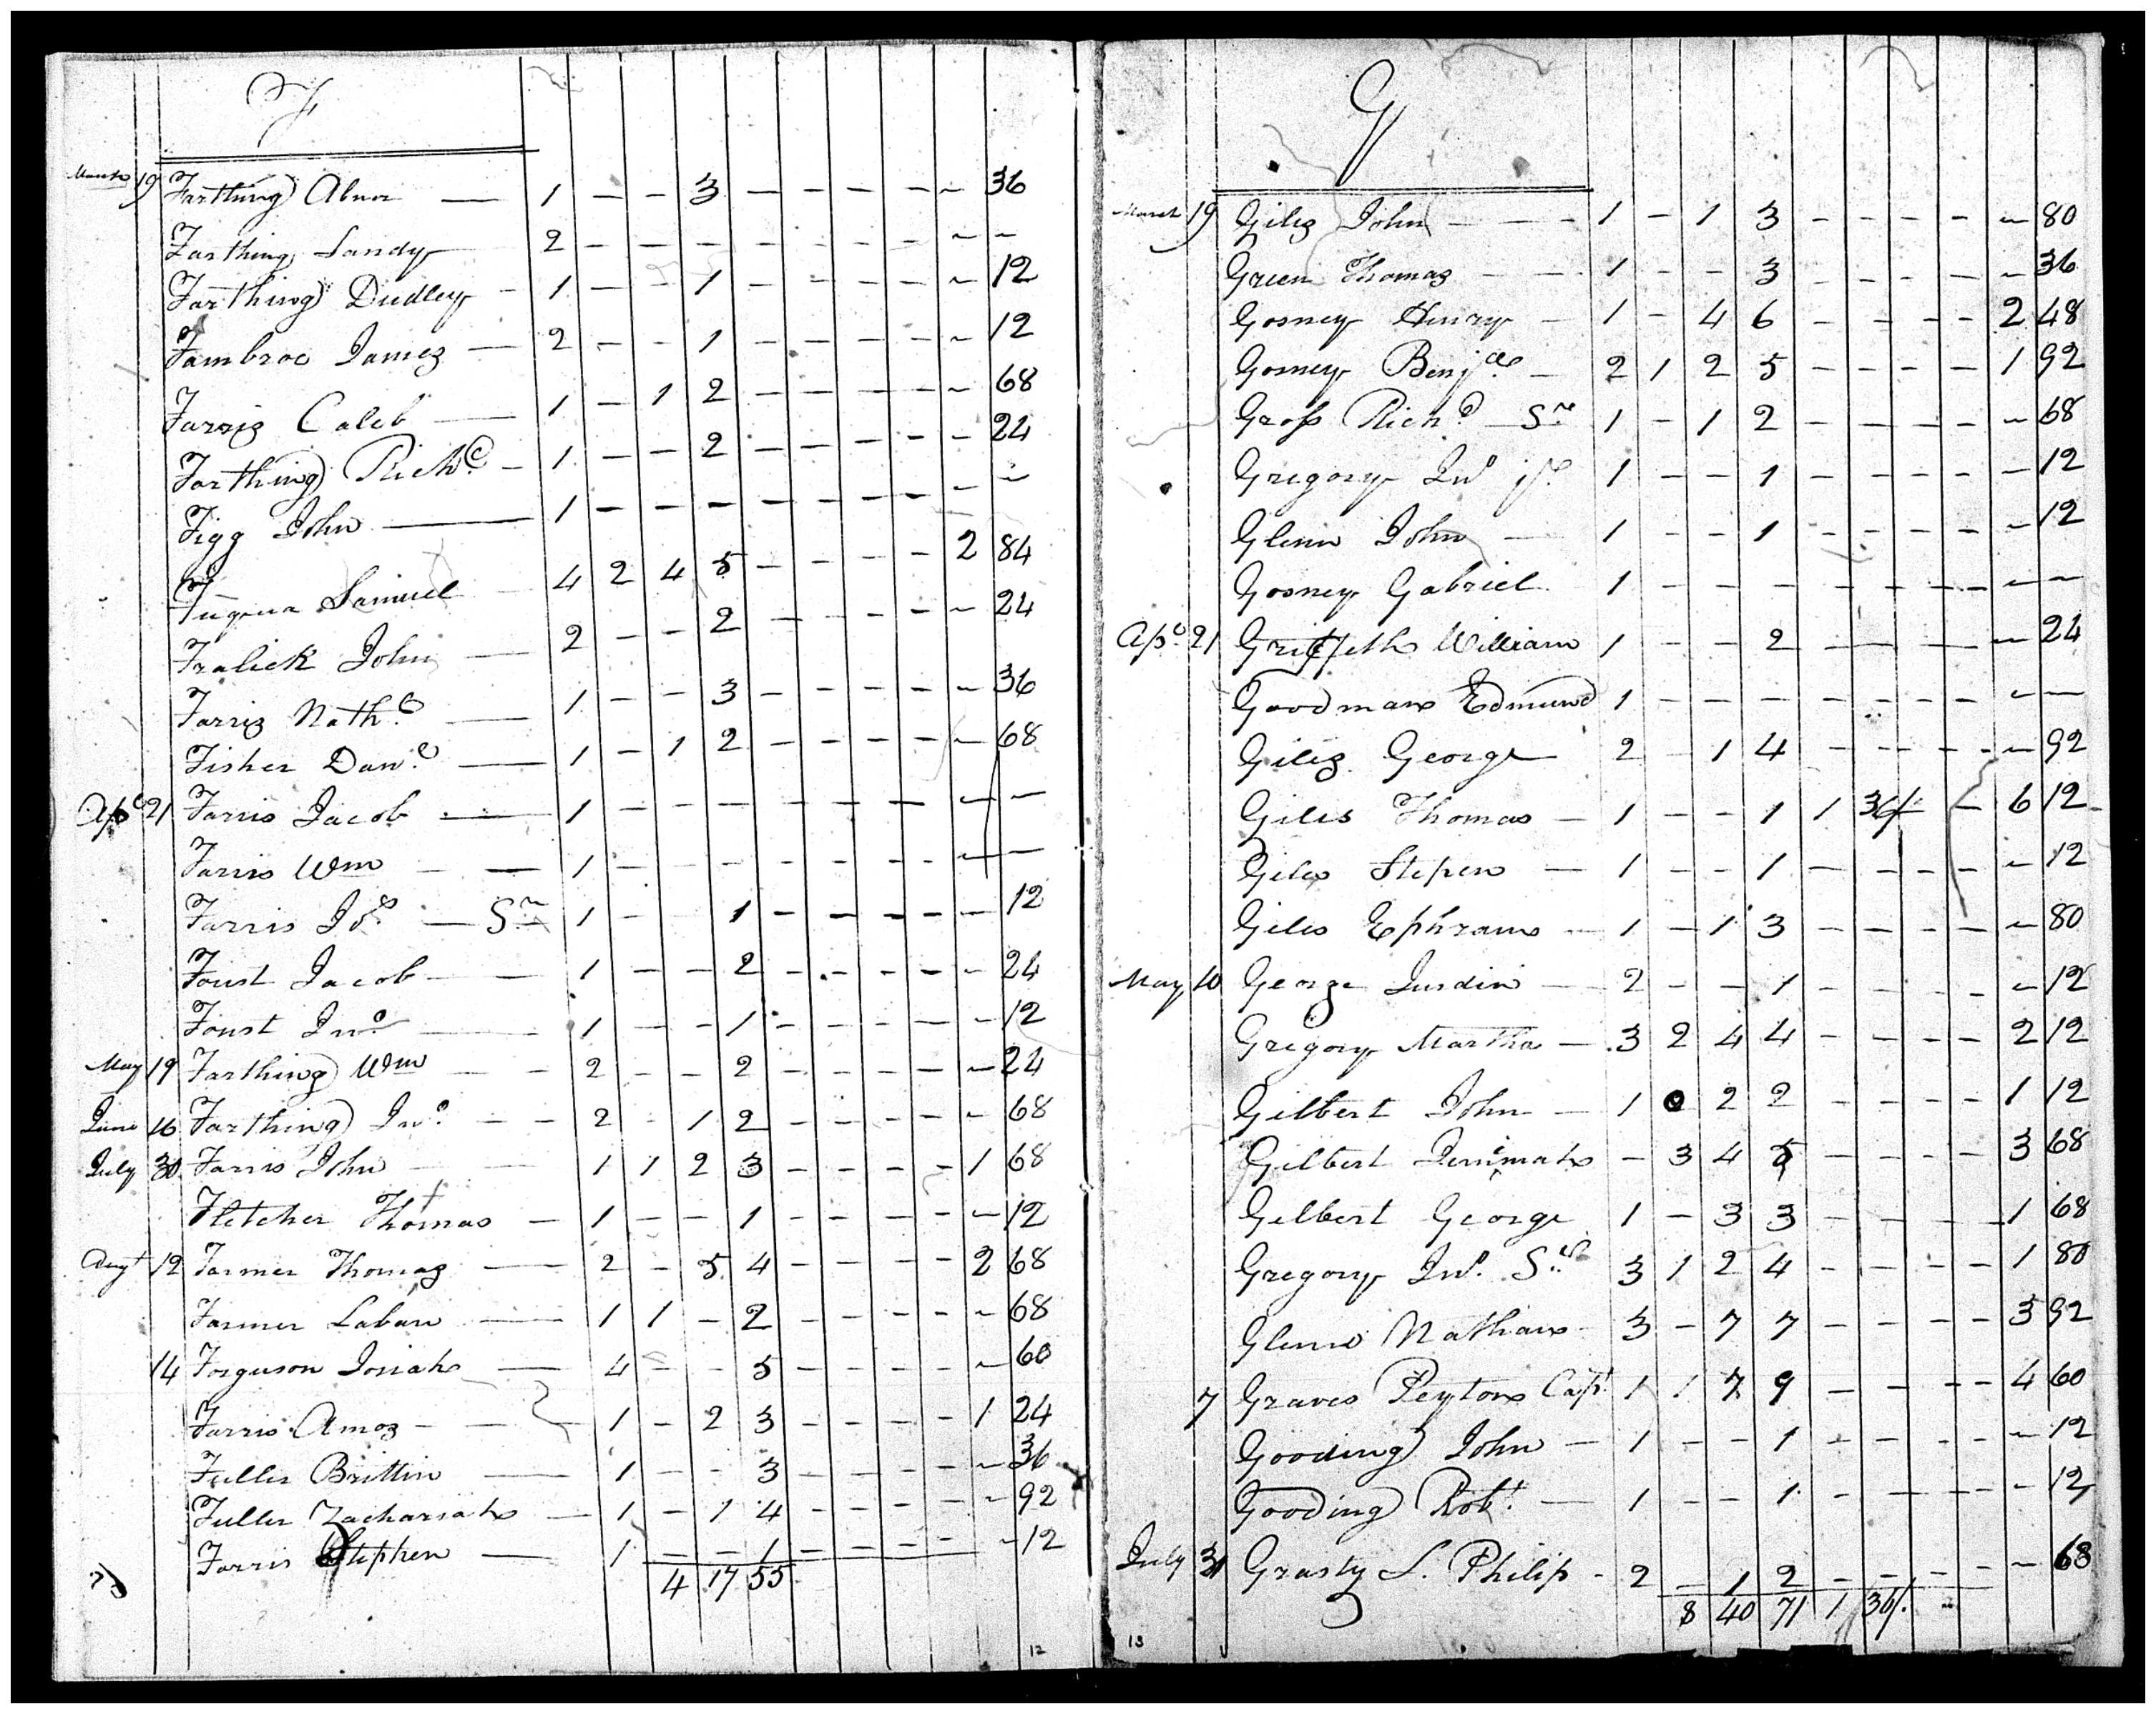 F
March 19 Farthing Abner — 1 — — 3 — — — — ~ 36
Farthing Sandy 2 — — — — — — — ~ —
Farthing Dudley - 1 — — 1 — — — — ~ 12
Fambroe James — 2 — — 1 — — — — ~ 12
Farris Caleb — 1 — 1 2 — — — — ~ 68
Farthing Richd - 1 — — 2 — — — — ~ 24
Figg John — 1 — — — — — — — — ~
Fuqua Samuel 4 2 4 5 — — — — 2 84
Fralick John — 2 — — 2 — — — — ~ 24
Farris Nathl — 1 — — 3 — — — — ~ 36
Fisher Danl — 1 — 1 2 — — — — ~ 68
Apl 21 Farris Jacob — 1 — — — — — — — — —
Farris Wm — 1 — — — — — — — — —
Farris Jas — Sr 1 — 1 — — — — — 12
Foust Jacob — 1 — — 2 — — — — ~ 24
Foust Jno — 1 — — 1 — — — — ~ 12
May 19 Farthing Wm — 2 — — 2 — — — — ~ 24
June 16 Farthing Jno — 2 - 1 2 — — — — ~ 68
July 30 Farris John 1 1 2 3 — — — — 1 68
Fletcher Thomas — 1 — — 1 — — — — ~ 12
Augt 12 Farmer Thomas — 2 — 5 4 — — — — 2 68
Farmer Laban — 1 1 — 2 — — — — ~ 68
14 Forguson Josiah — 4 — — 5 — — — — ~ 60
Farris Amos — 1 — 2 3 — — — — 1 24
Fuller Brittin — 1 — — 3 — — — — ~ 36
Fuller Zachariah — 1 — 1 4 — — — — ~ 92
Farris Stephen — 1 — — 1 — — — — ~ 12
4 17 55
12
G
March 19 Giles John — 1 — 1 3 — — — — ~ 80
Green Thomas — 1 — — 3 — — — — ~ 36
Gosney Henry — 1 — 4 6 — — — — 2 48
Gosney Benja — 2 1 2 5 — — — — 1 92
Gross Richd — Sr 1 — 1 2 — — — — ~ 68
Gregory Jno jr 1 — — 1 — — — — ~ 12
Glenn John — 1 — — 1 — — — — ~ 12
Gosney Gabriel 1 — — — — — — — — —
Apl 21 Griffeth William 1 — — 2 — — — — ~ 24
Goodman Edmund 1 — — — — — — — — —
Giles George 2 — 1 4 — — — — ~ 92
Giles Thomas — 1 — — 1 1 36/ — 6 12
Giles Stepen — 1 — — 1 — — — — ~ 12
Giles Ephram — 1 — 1 3 — — — — ~ 80
May 10 George Jurdin — 2 — — 1 — — — — ~ 12
Gregory Martha — 3 2 4 4 — — — — 2 12
Gilbert John — 1 0 2 2 — — — — 1 12
Gilbert — 3 4 5 — — — — 3 68
Gelbert George 1 — 3 3 — — — — 1 68
Gregory Jno. Sr 3 1 2 4 — — — — 1 80
Glenn Nathan 3 — 7 7 — — — — 3 92
7 Graves Peyton Capt 1 1 7 9 — — — — 4 60
Gooding John — 1 — — 1 — — — — ~ 12
Gooding Robt — 1 — — 1 — — — — ~ 12
July 31 Grasty S. Philip - 2 — 1 2 — — — — ~ 68
8 40 71 1 36/.
13